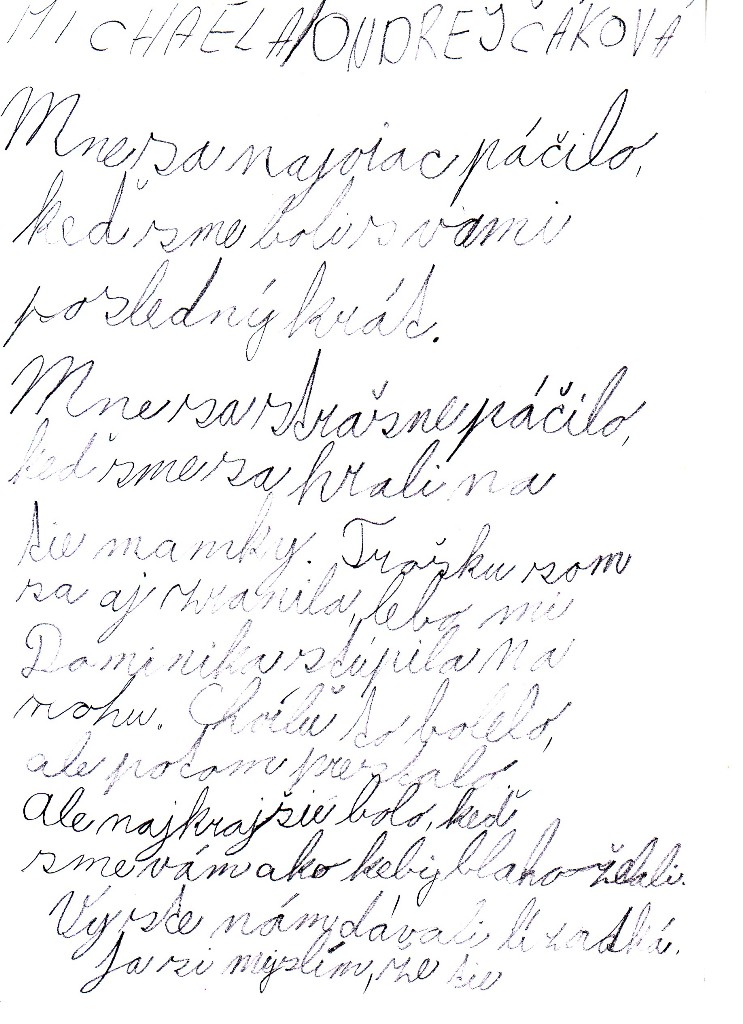 MICHAELA ONDREJČÁKOVÁ
Mne sa najviac páčilo,
keď sme boli s vami
posledný krát.
Mne sa strašne páčilo,
keď sme sa hrali na
tie mamky. Trošku som
sa aj zranila, lebo mi
Dominika stúpila na
nohu. Chvíľu to bolelo,
ale potom prestalo,
ale najkrajšie bolo, keď
sme vám ako keby blaho-želali.
Vy ste nám dávali lízadká.
Ja si myslím, že tie